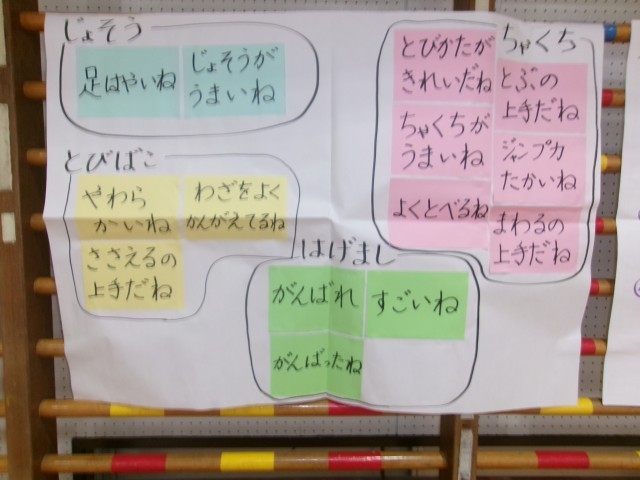 じょそう
足はやいね
じょそうが
うまいね
ちゃくち
とびかたが
きれいだね
とぶの
上手だね
ちゃくちが
うまいね
ジャンプ力
たかいね
よくとべるね
まわるの
上手だね
とびばこ
やわら
かいね
わざをよく
かんがえてるね
ささえるの
上手だね
はげまし
がんばれ
すごいね
がんばったね